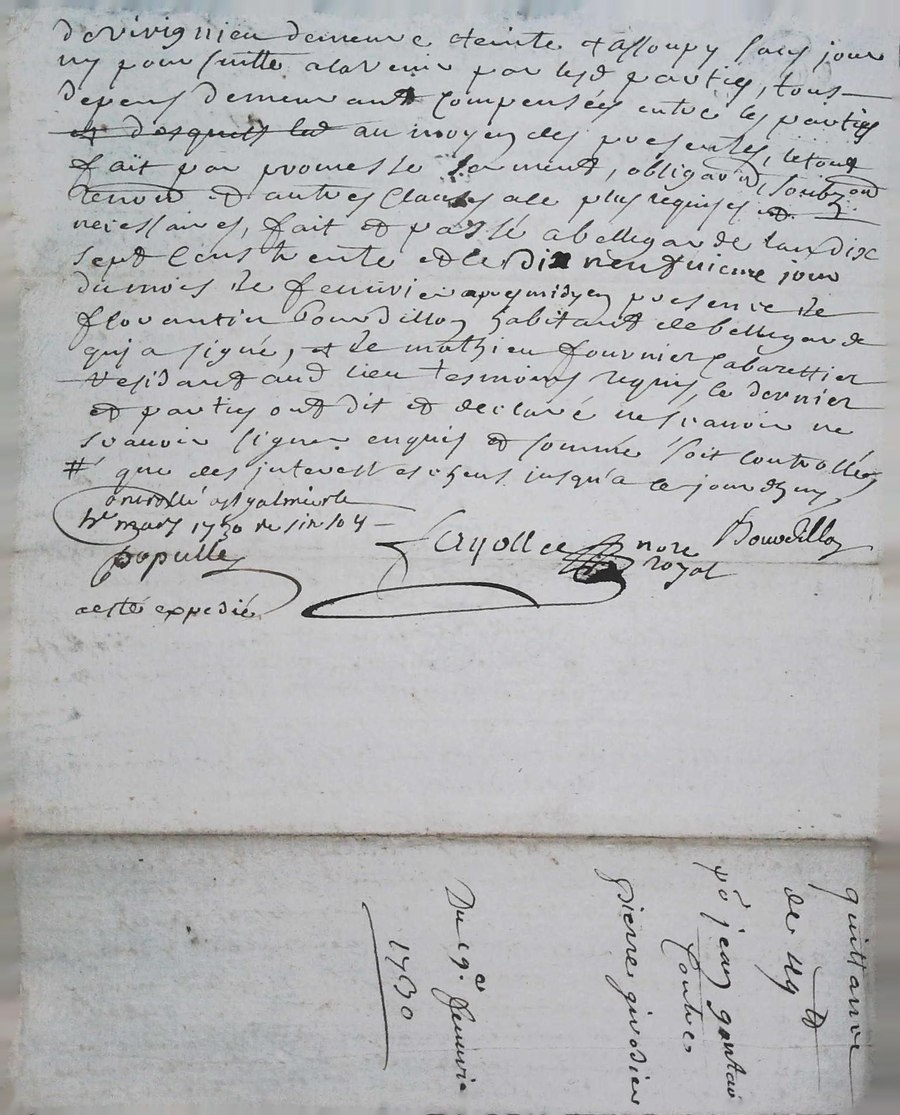 de vivignieu demeure eteinte et assoupy sans jour
ny pour suitte a lavenir par lesd parties, tous
depens demeurant compensées entre les parties
au moyen des presentes, le tout
fait par promesse serment, obligaon, soubzon
renon et autres clauses ale plus requises et
necessaires, fait et passé a bellegarde lan dix
sept cens trente et le dix neufvieme jour
du mois de fevrvier apres midy en presence de
florantin bourdillon habitant de bellegarde
qui a signé, et de mathieu fournier cabarettier
residant aud lieu tesmoins requis, le dernier
et parties ont dit et declaré ne scavoir ne
scavoir signer enquis et sommé soit controllées
# que des interest escheus jusqu'a ce jourdhuy,
controllé a st galmier le
mars 1730 re six sols
populle
fayolle nore royal
Bourdillon
a esté expedié
quittance
de 49 ₶
pr jean gontard
Contre
pierre girodier
Du 19e fevrvier
1730